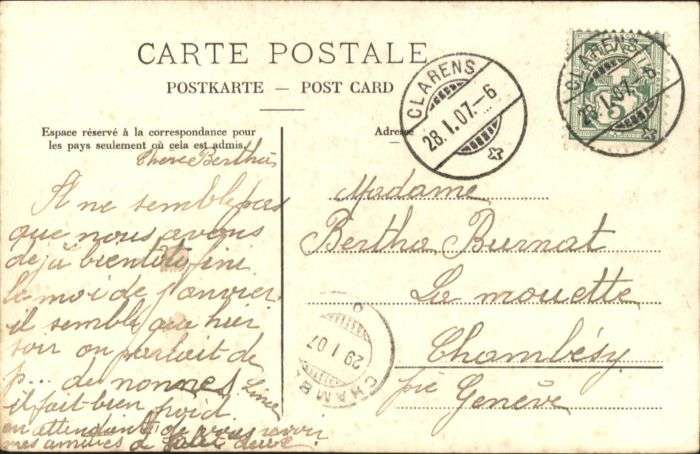 CARTE POSTALE
POSTKARTE — POST CARD
Espace réservé à la correspondance pour
les pays seulement où cela est admis.
Adresse
CLARENS
28.I.07.–6
CLARENS
28.I.07.–6
5
Chère Bertha
Il ne semble pas
que nous avons
déjà bientôt fini
le moi de janvier
il semble que hier
soir on parlait de
p... de nonnes
il fait bien froid.
en attendant de vous revoir
mes amitiés de
Madame
Bertha Burnat
La mouette
Chambésy
près
Genève
CHAMB
29 I 07